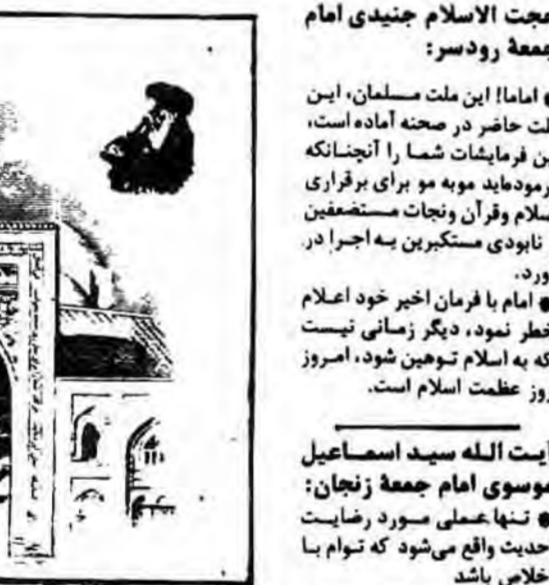 حجت الاسلام جنیدی امام
جمعهٔ رودسر:
● اماما! این ملت مسلمان، این
ملت حاضر در صحنه آماده است،
این فرمایشات شما را آنچنانکه
فرموده‌اید موبه مو برای برقراری
اسلام وقرآن ونجات مستضعفین
و نابودی مستکبرین به اجرا در
آورد.
● امام با فرمان اخیر خود اعلام
خطر نمود، دیگر زمانی نیست
که به اسلام توهین شود، امروز
روز عظمت اسلام است.
آیت الله سید اسماعیل
موسوی امام جمعهٔ زنجان:
● تنها عملی مورد رضایت
احدیت واقع می‌شود که توام با
اخلاص باشد